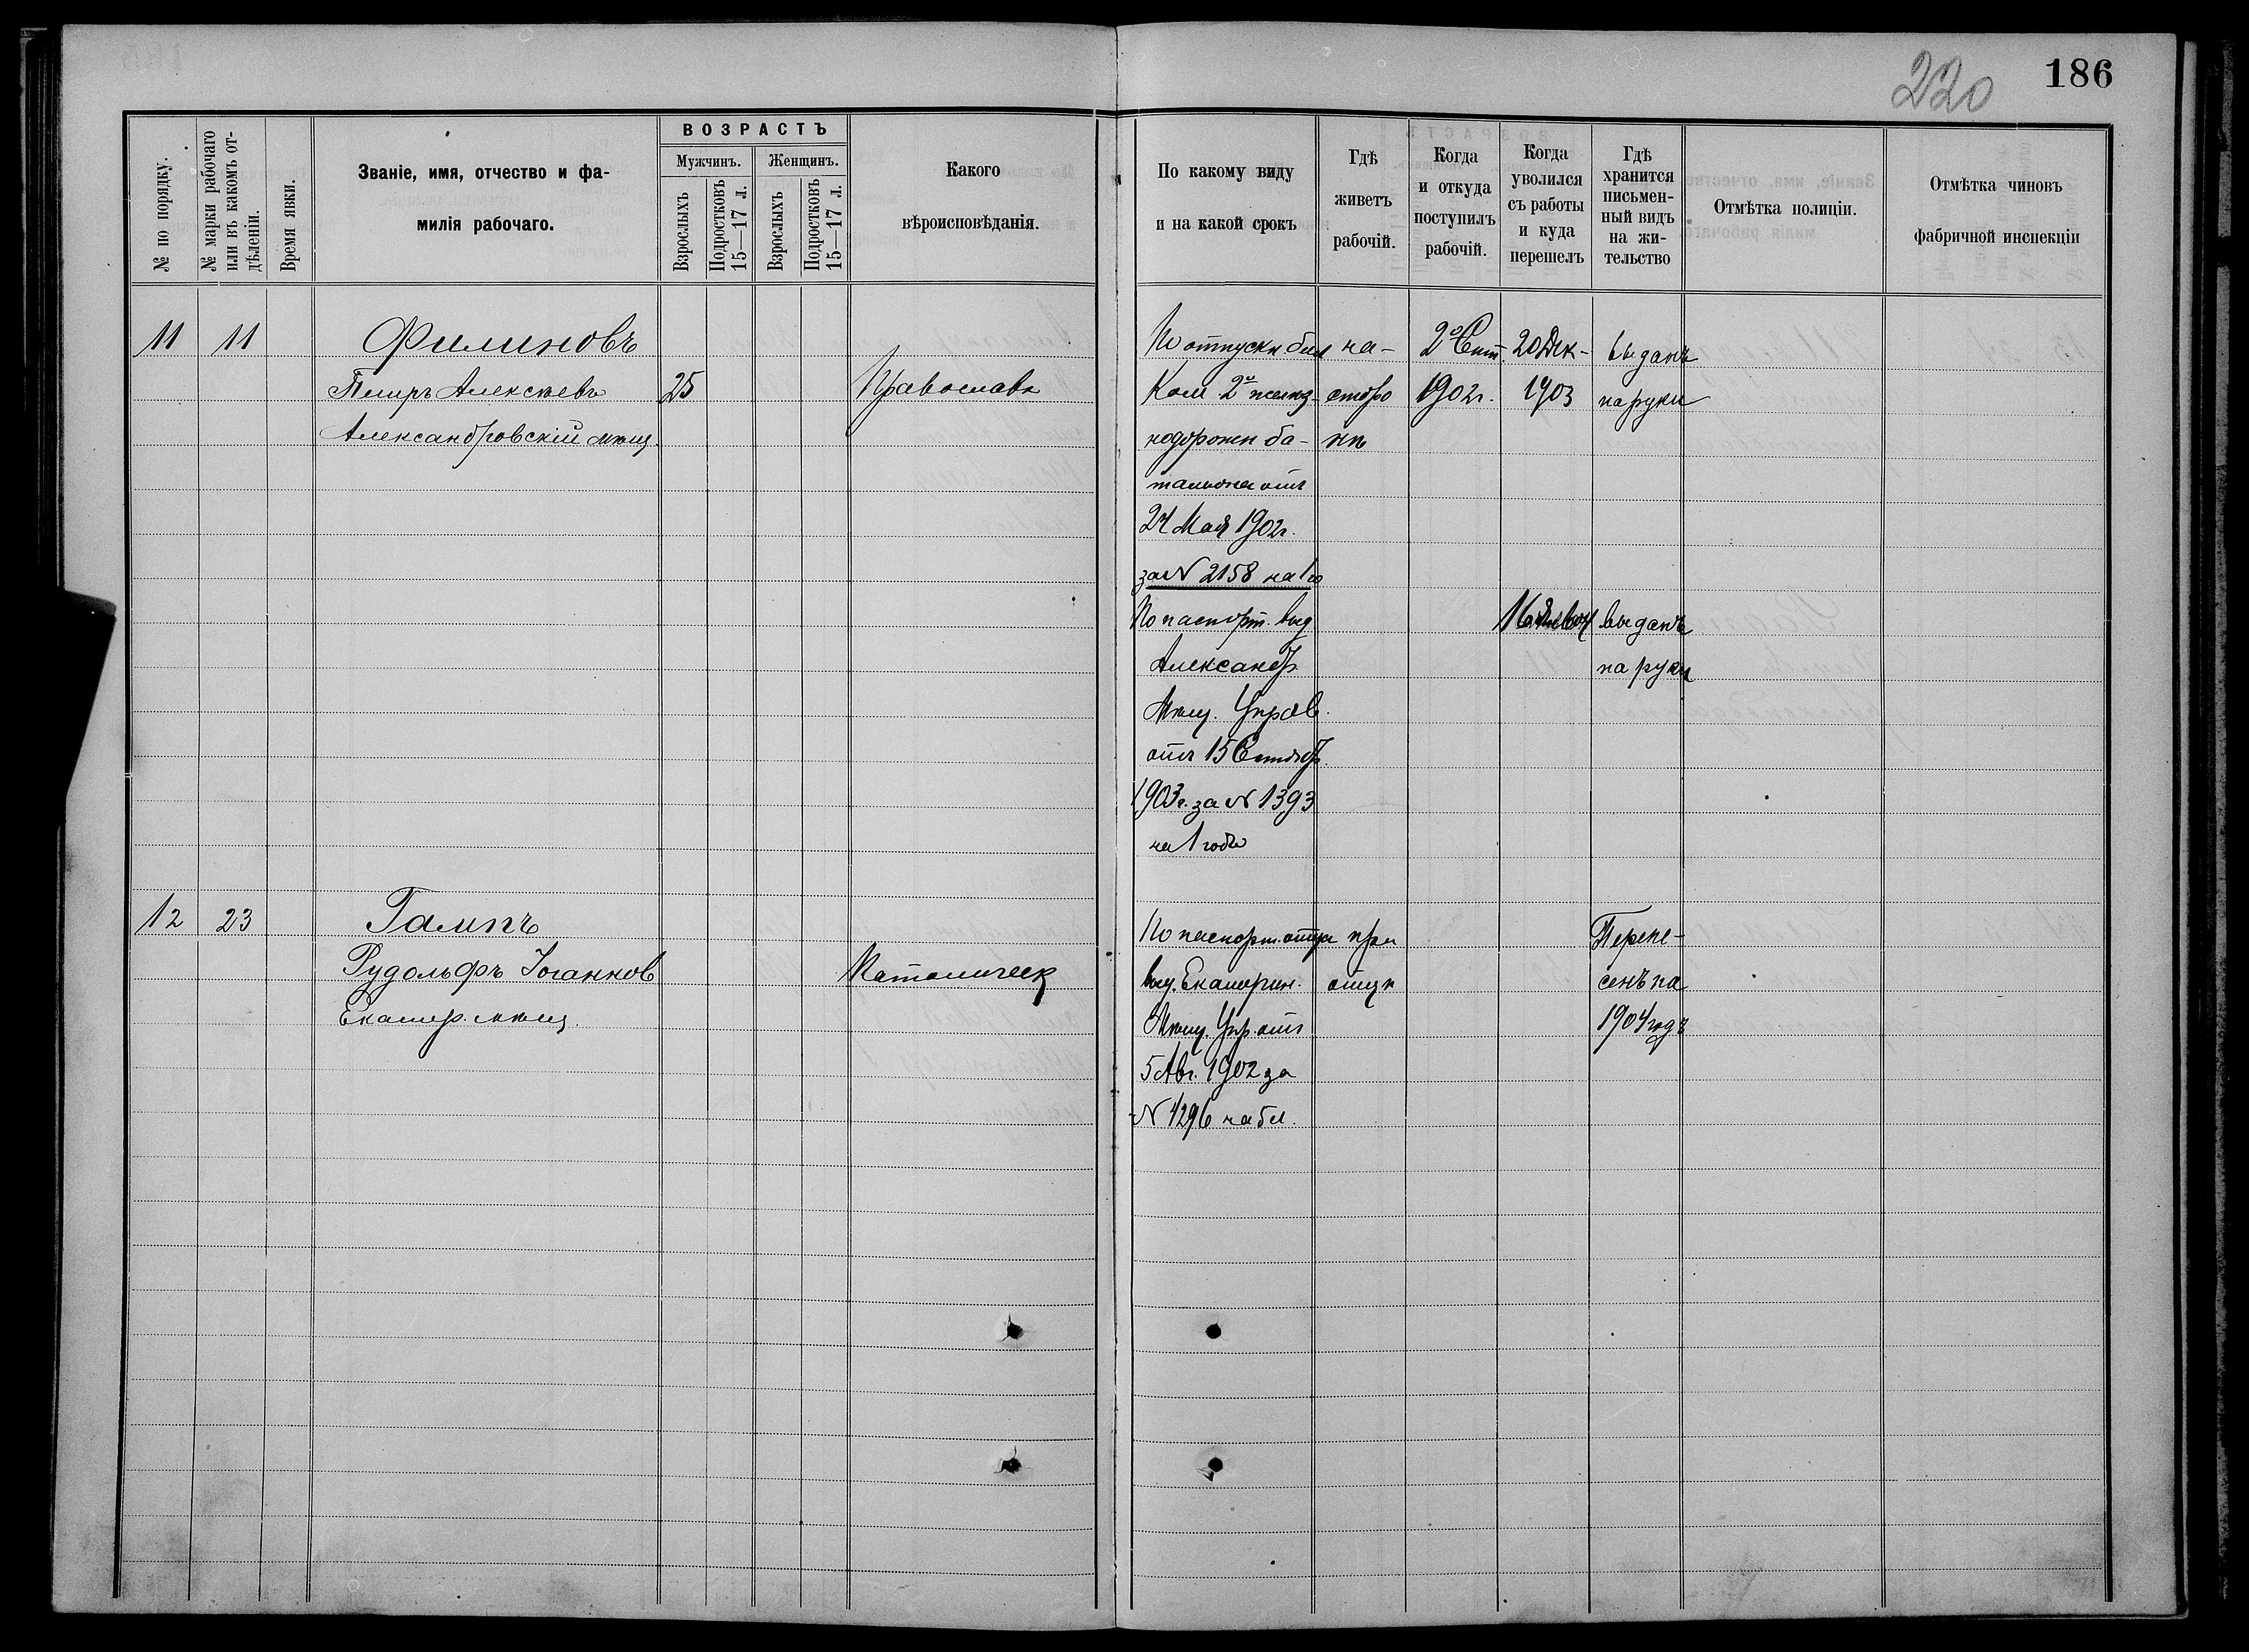 220
186
№ по порядку.
№ марки рабочаго или въ какомъ отдѣленіи.
Время явки.
Званіе, имя, отчество и фа-
милія рабочаго.
ВОЗРАСТЪ
Мужчинъ.
Женщинъ.
Взрослыхъ
Подростковъ 15—17 л.
Взрослыхъ
Подростковъ 15—17 л.
Какого
вѣроисповѣданія.
По какому виду
и на какой срокъ
Гдѣ
живетъ
рабочій.
Когда
и откуда
поступилъ
рабочій.
Когда
уволился
съ работы
и куда
перешелъ
Гдѣ
хранится
письмен-
ный видъ
на жи-
тельство
Отмѣтка полиціи.
Отмѣтка чиновъ
фабричной инспекціи
11 11 Филиновъ
Петръ Алексѣевъ 25 Православн
Александровскій мѣщ.
По отпускн бил на- 2го Сент. 20 Дек- выданъ
Ком 2й желѣз- сторо 1902г. 1903 на руки
нодорожн ба- нѣ
тальона отъ
24 Мая 1902г.
за № 2158 на 1
По паспорт. выд выданъ
Александр. на руки
Мѣщ. Управ.
отъ 15 Сентябр.
1903г. за № 1393
на 1 годъ
12 23 Гампъ
Рудольфъ Іоганнов Католическ
Екатер. мѣщ.
По паспорт. отца при Перене-
выд. Екатерин. отцѣ сенъ на
Мѣщ. Упр. отъ 1904 годъ
5 Авг. 1902 за
№ 4296 на бл.